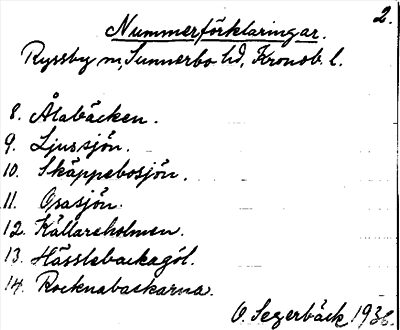 2.
Nummerförklaringar.
Ryssby sn, Sunnerbo hd, Kronob. l.
8. Ålabäcken.
9. Ljussjön.
10. Skäppebosjön.
11. Osasjön.
12. Källareholmen.
13. Hässlebackagöl.
14. Rocknabackarna.
O. Segerbäck 1936.